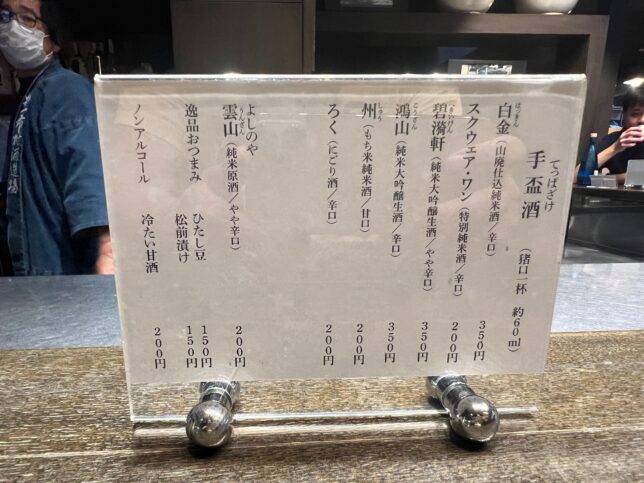 てっぱざけ
手盃酒 (猪口一杯 約60ml)
はっきん
白金(山廃仕込純米酒/辛口) 350円
スクウェア・ワン(特別純米酒/辛口) 200円
碧漪軒(純米大吟醸生酒/やや辛口) 350円
こうざん
鴻山(純米大吟醸生酒/辛口) 350円
しゅう
州(もち米純米酒/甘口) 200円
ろく(にごり酒/辛口) 200円
よしのや
うんざん
雲山(純米原酒/やや辛口) 200円
逸品おつまみ ひたし豆 150円
松前漬け 150円
ノンアルコール 冷たい甘酒 200円